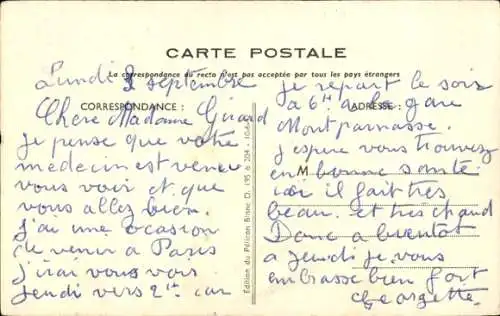 CARTE POSTALE
La correspondance au recto n'est pas acceptée par tous les pays étrangers
CORRESPONDANCE :
ADRESSE :
Lundi 3 septembre
Chere Madame Girard
je pense que votre
médecin est venu
vous voir et que
vous allez bien.
j'ai une occasion
de venir a Paris
j'irai vous voir
jeudi vers 2h car
je repart le soir
a 6h a la gare
Montparnasse.
j'espere vous trouvez
en bonne santé
ici il fait très
beau. et très chaud
Donc a bientot
a jeudi je vous
embrasse bien fort
Georgette
M
Édition du Pélican Blanc D.